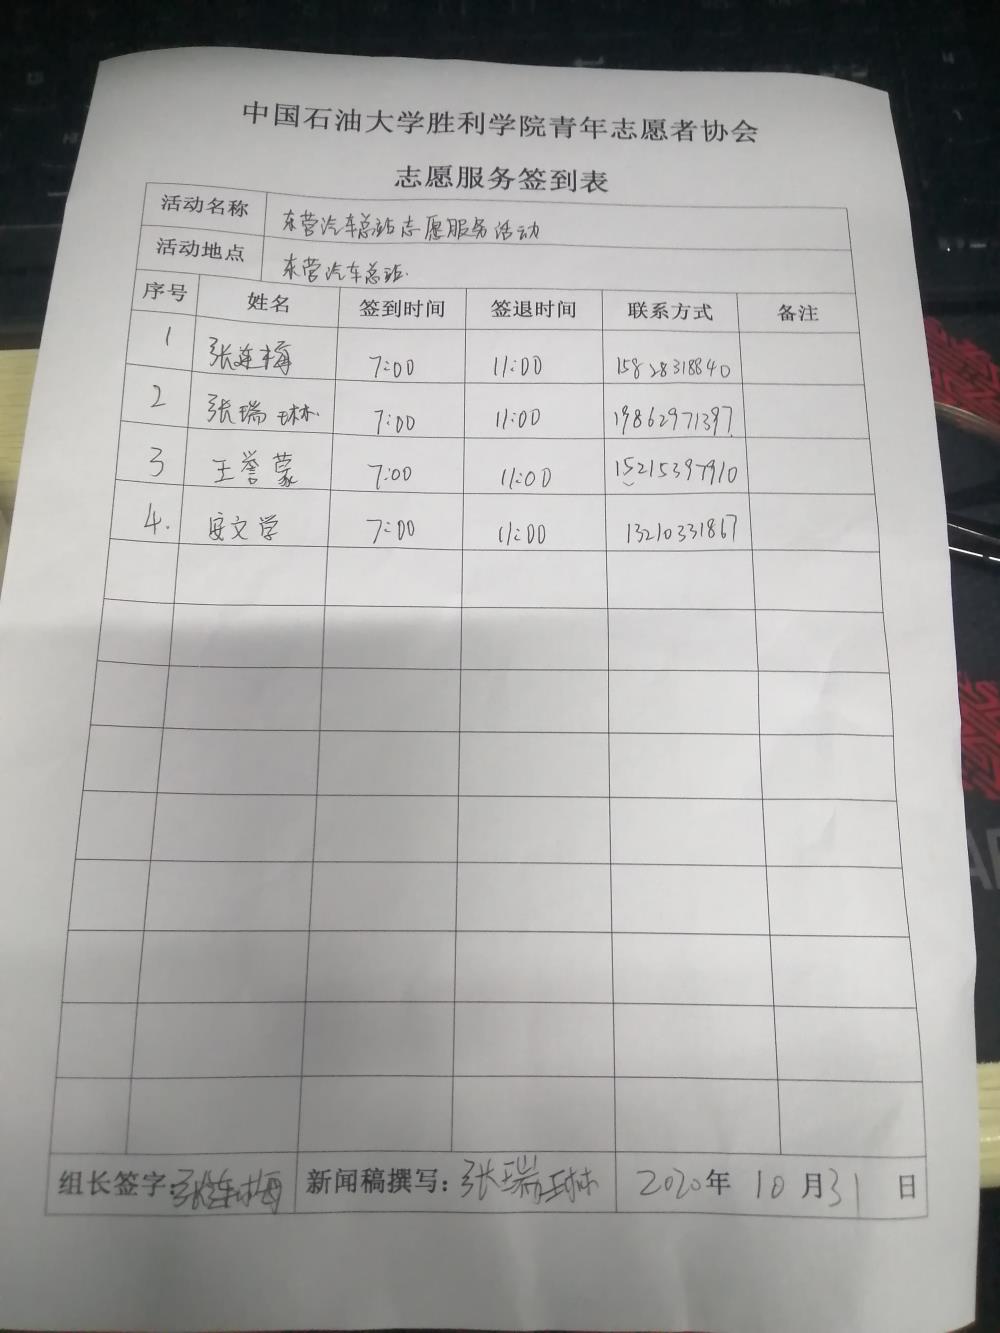 中国石油大学胜利学院青年志愿者协会
志愿服务签到表
活动名称 东营汽车总站志愿服务活动
活动地点 东营汽车总站.
序号 姓名 签到时间 签退时间 联系方式 备注
1 张连梅 7:00 11:00 15828318840
2 张瑞琳. 7:00 11:00 19862971397
3 王誉蒙 7:00 11:00 15215397910
4. 安文学 7:00 11:00 13210331867
组长签字:张连梅 新闻稿撰写:张瑞琳 2020年 10月31日